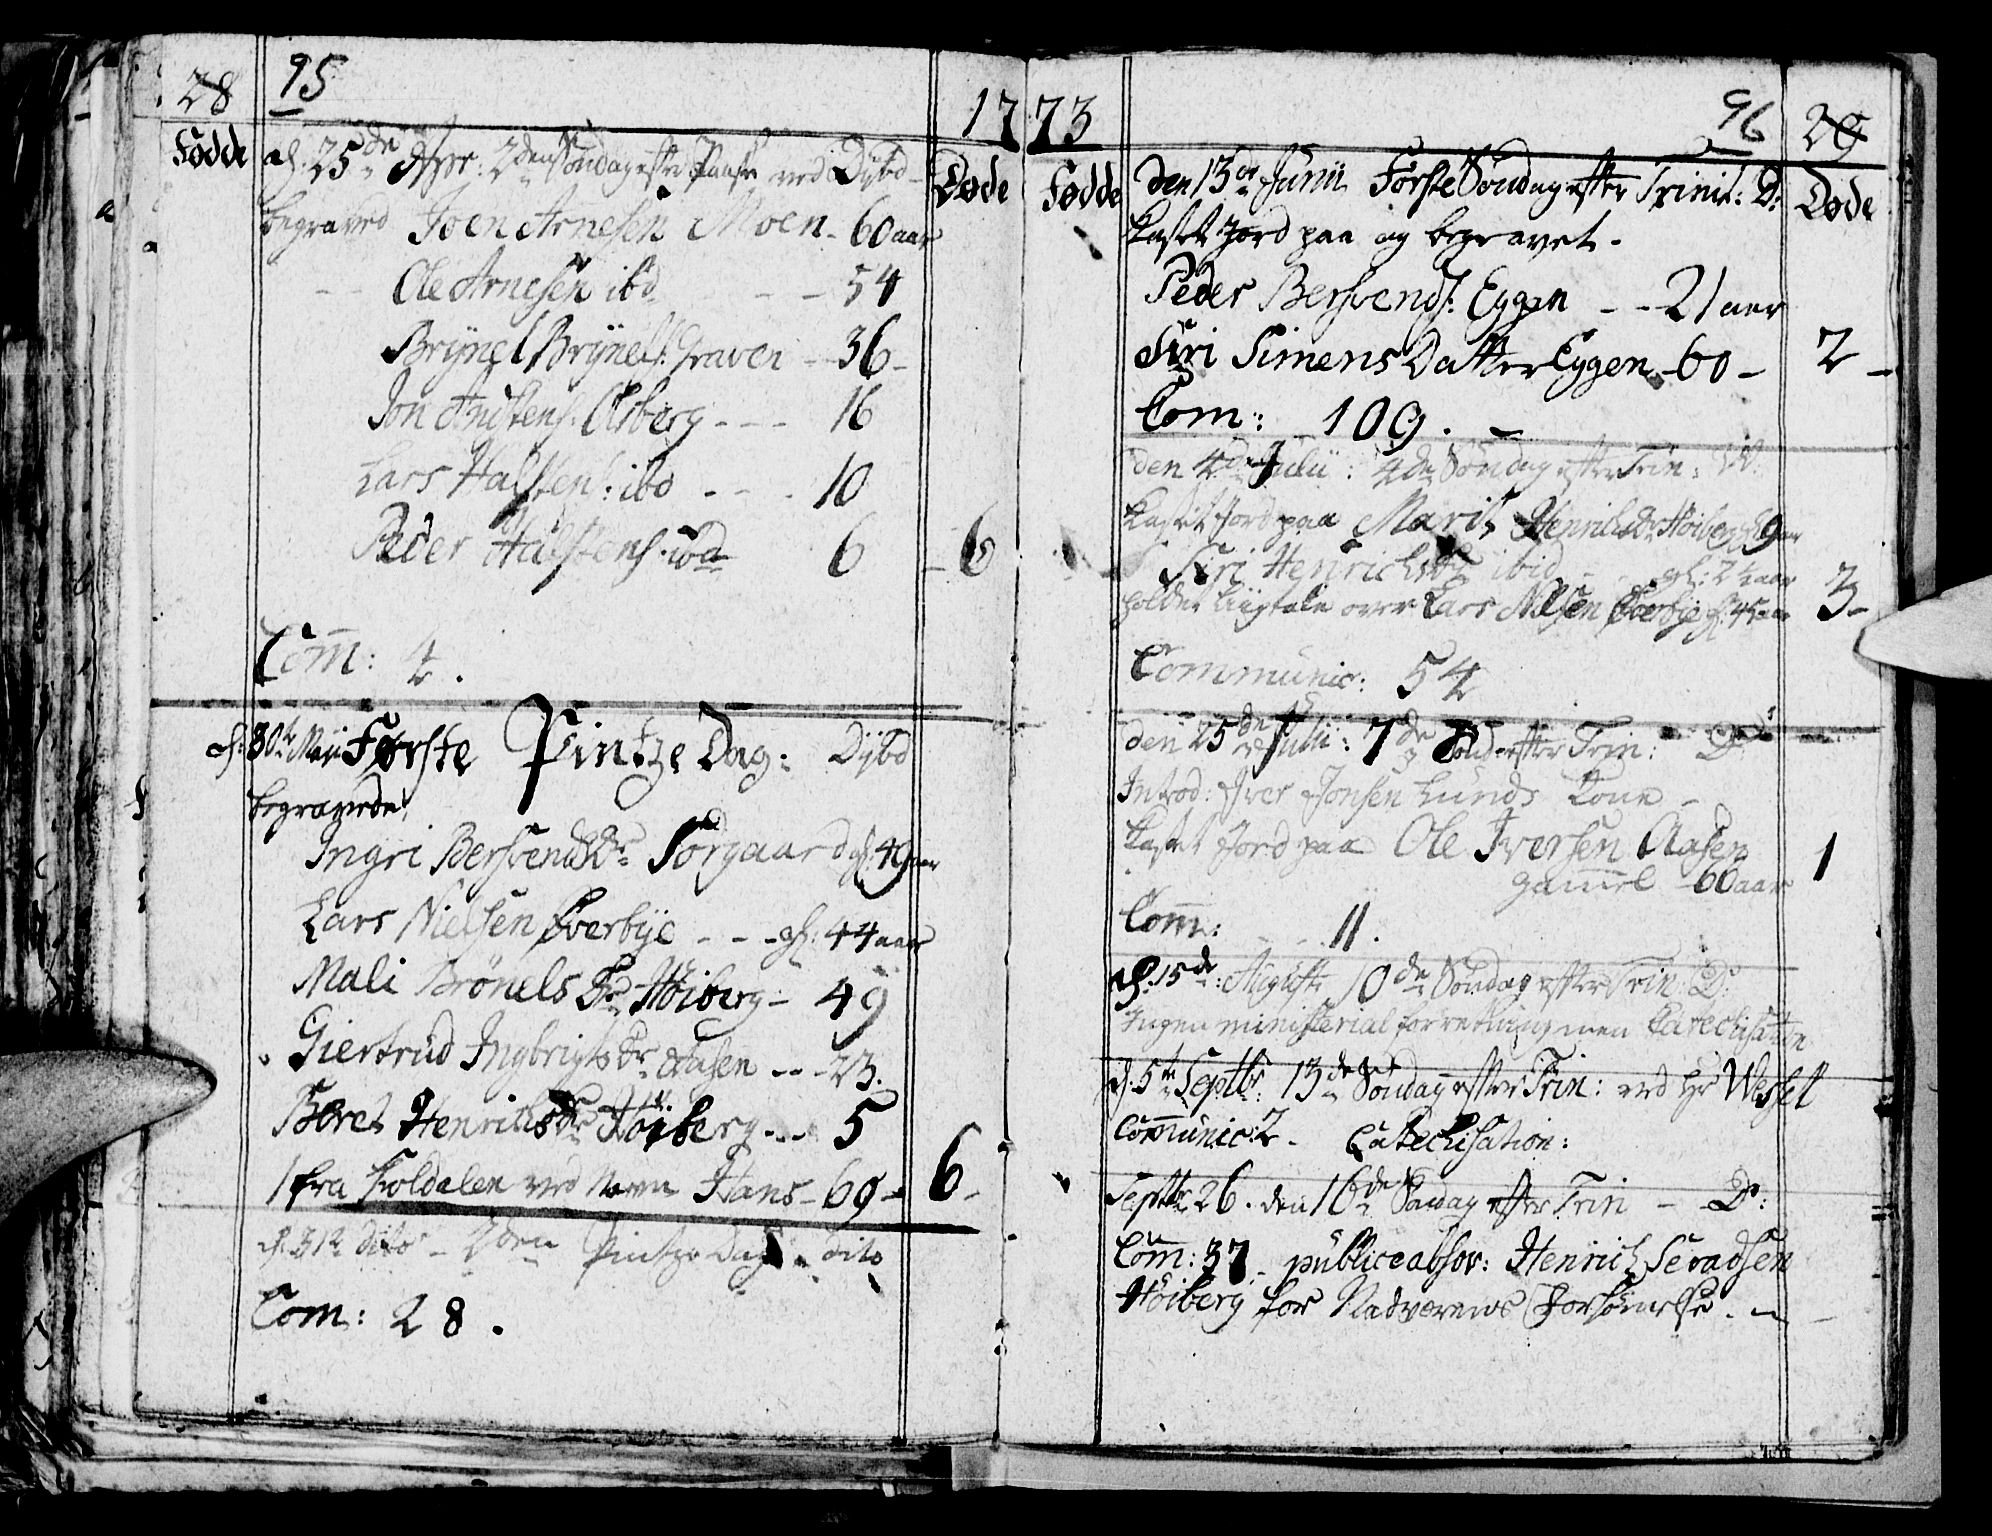 28 95
1773
Fødde Døde
d. 25de Apr: 2den Søndag efter Paaske ved Dybd
begraved Joen Arnesen Moen - 60 aar
- - Ole Arnesen ibd - - 54
Brÿnel Brÿnels: Graven - 36 -
Jon Andstens: Aasberg - - - 16
Lars Halstens: ibd - - - 10
Peder Halstens: ibd 6 - 6
Com̄: 4.
d: 30te Maji Første Pintze Dag: Dybd
begravede
Ingri Bersvends Dr Sørgaard gl: 49 aar
Lars Nielsen Øverbÿe - - - gl: 44 aar
Mali Brönels Dr Høiberg - 49
Giertrud Ingbrigts Dr Aasen - - - 23.
Beret Henrichs Dr Høiberg - - - 5
1 fra Foldalen ved Navn Hans - 69 - 6 -
d. 31te dito - 2den Pintze Dag - dito
Com: 28.
96 29
Fødde Døde
den 13de Junii Første Søndag efter Trinit: D:
kastet Jord paa og begravet.
Peder Bersvends: Eggen - - 21 aar
Siri Simens Datter Eggen - 60 - 2 -
Com: 109. -
den 4de Julii: 4de Søndag efter Trin:
kastet Jord paa Marit Henrichs Dr Høiberg 9 aar
Siri Henrichs Dr ibid - gl: 2½ aar
holdet Liigtale over Lars Nilsen Øverbÿe gl: 45 aar 3 -
Communic: 54
den 25de Julii: 7de Sønd efter Trin: D
Introd: Iver Jonsen Lunds Kone -
kastet Jord paa Ole Iversen Aasen
gam̄el - 60 aar 1
Com̄: - - 11.
d. 15de: Augusti 10de Søndag efter Trin: D:
Ingen ministerial forretning men Catechisation
d. 5te Septbr: 13de Søndag efter Trin: ved Hr Wessel
Com̄unic: 2 - Catechisation:
Septbr 26. den 16de Søndag efter Trin - D:
Com̄: 37 - publice absov: Henrich Sevadsen
Høiberg for Nadverens Forsømelse. -